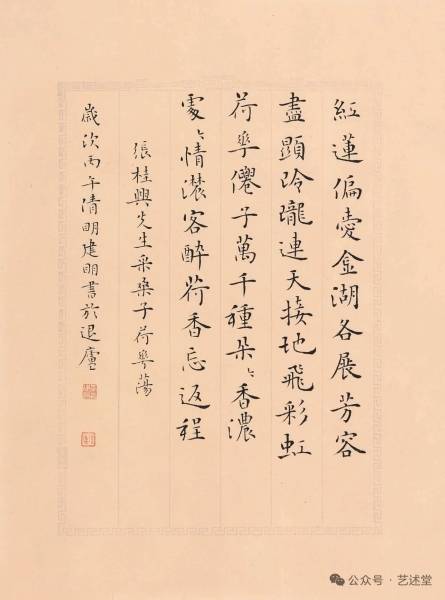 紅蓮偏愛金湖各展芳容
盡顯玲瓏連天接地飛彩虹
荷華僊子萬千種朵〻香濃
處〻情濃客醉荷香忘返程
張桂興先生采桑子荷華蕩
歲次丙午清明建明書於退廬
公众号·艺述堂